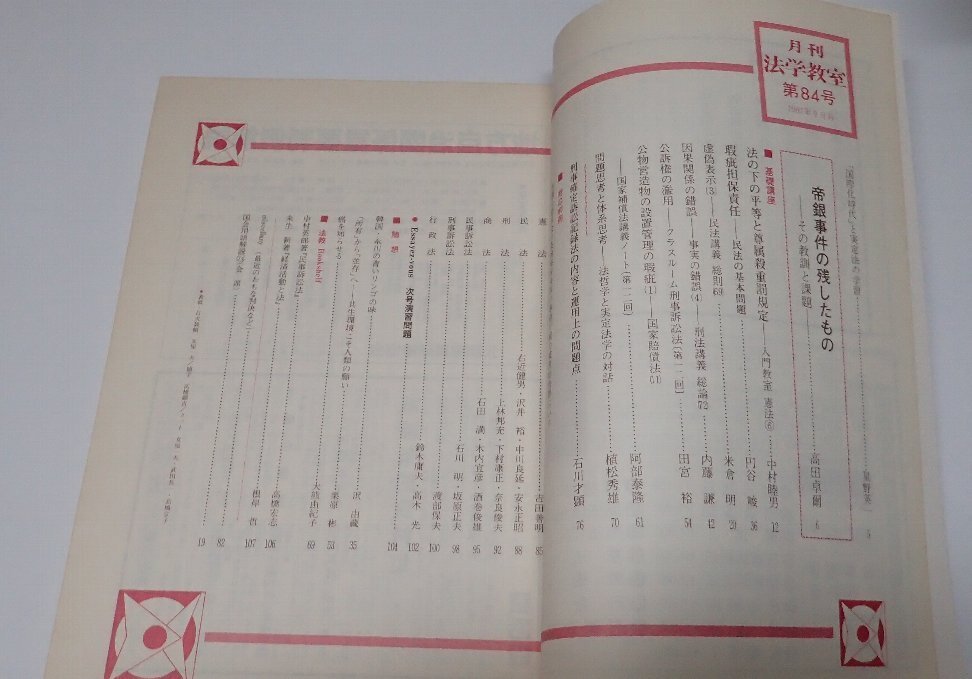 月刊
法学教室
第84号
「国際化時代」と実定法の学習
星野英一
5
帝銀事件の残したもの
――その教訓と課題
高田卓爾 6
■ 基礎講座
法の下の平等と尊属殺重罰規定――入門教室 憲法⑥ 中村睦男 12
瑕疵担保責任――民法の基本問題 円谷 峻 36
虚偽表示(3)――民法講義 総則69 米倉 明 20
因果関係の錯誤――事実の錯誤(4)――刑法講義 総論72 内藤 謙 42
公訴権の濫用――クラスルーム刑事訴訟法(第一二回) 田宮 裕 54
公物営造物の設置管理の瑕疵(1)――国家賠償法(11)
――国家補償法講義ノート(第一二回) 阿部泰隆 61
問題思考と体系思考――法哲学と実定法学の対話 植松秀雄 70
刑事確定訴訟記録法の内容と運用上の問題点 石川才顕 76
憲法 吉田善明 85
民法 右近健男・沢井 裕・中川良延・安永正昭 88
刑法 上林邦充・下村康正・奈良俊夫 92
商法 石田 満・木内宜彦・酒巻俊雄 95
民事訴訟法 石川 明・坂原正夫 98
刑事訴訟法 渡部保夫 100
行政法 鈴木庸夫・高木 光 102
● Essayer-vous 次号演習問題 104
■ 随想
韓国・永川の青いリンゴの味 沢 由蔵 35
「所有」から「並存」へ――共生環境こそ人類の願い 栗原 彬 53
癌を知らせる 大熊由紀子 69
■ 法教 Bookshelf
中村英郎著『民事訴訟法』 高橋宏志 106
来生 新著『経済活動と法』 根岸 哲 107
82
19